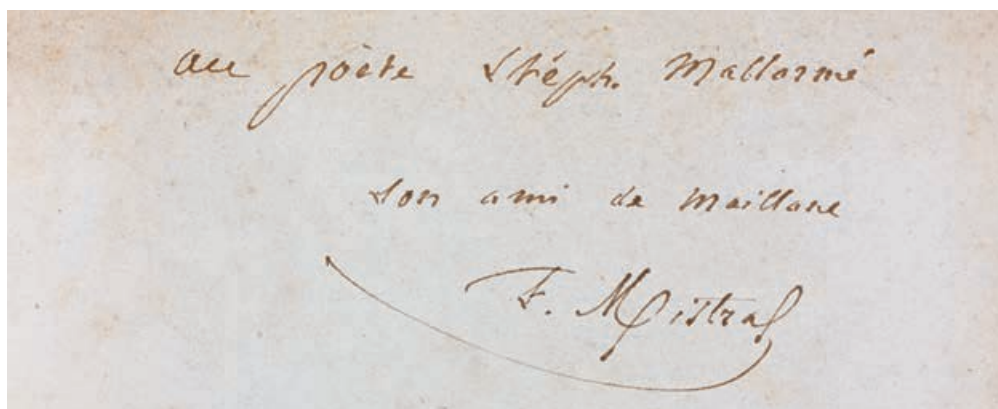 au poète Stéph. Mallarmé
son ami de Maillane
F. Mistral